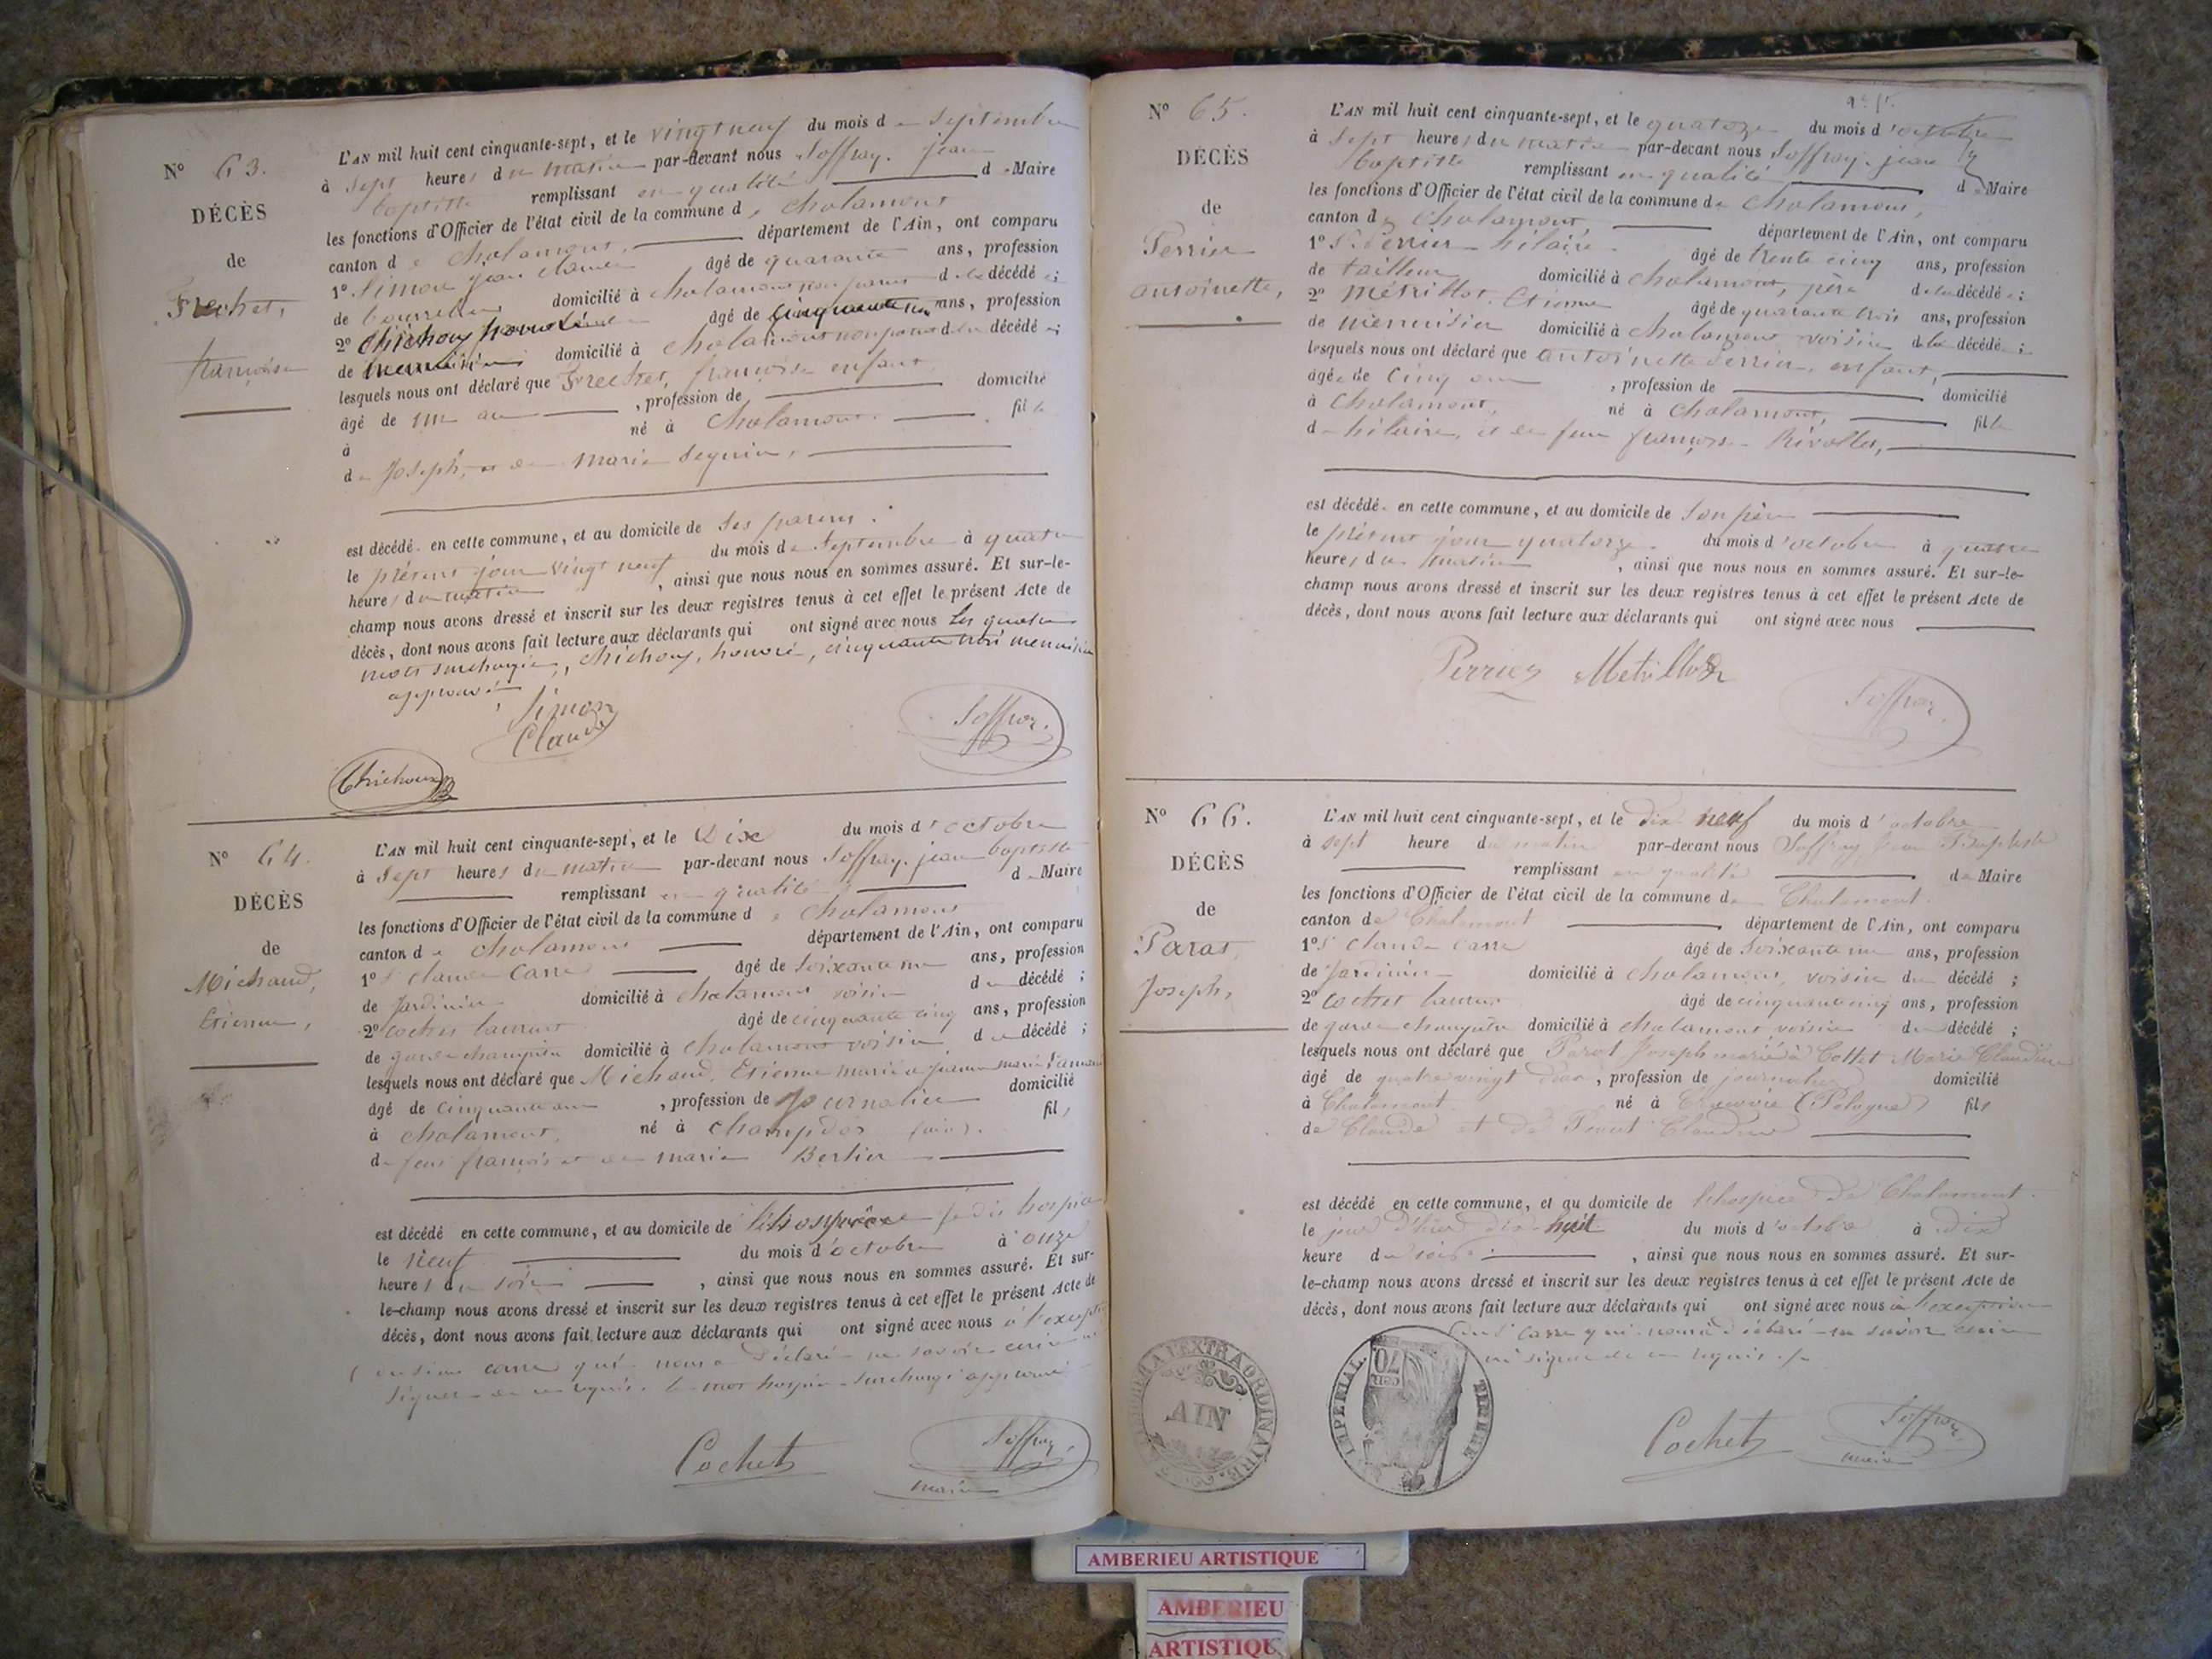 N° 63.
DÉCÈS
de
Frechet,
françoise
L'AN mil huit cent cinquante-sept, et le vingt neuf du mois de Septembre
à Sept heures du matin par-devant nous Soffray, jean
baptiste remplissant en qualité de Maire
les fonctions d'Officier de l'état civil de la commune de Chalamont
canton de Chalamont, département de l'Ain, ont comparu
1° Simon jean claude âgé de quarante ans, profession
de bourrelier domicilié à chalamont non parent de la décédée;
2° Chichoux honoré âgé de cinquante trois ans, profession
de menuisier domicilié à chalamont non parent de la décédée;
lesquels nous ont déclaré que Frechet, françoise enfant,
âgé de un an , profession de domicilié
à né à Chalamont. fille
de Joseph, et de marie Seguin,
est décédé en cette commune, et au domicile de Ses parens.
le présent jour vingt neuf du mois de Septembre à quatre
heures du matin , ainsi que nous nous en sommes assuré. Et sur-le-
champ nous avons dressé et inscrit sur les deux registres tenus à cet effet le présent Acte de
décès, dont nous avons fait lecture aux déclarants qui ont signé avec nous les quatre
mots surchargés, chichoux, honoré, cinquante trois menuisier
approuvé
Simon
Claude
Soffray
Chichoux
N° 64.
DÉCÈS
de
Michaud,
Etienne,
L'AN mil huit cent cinquante-sept, et le Dix du mois d'octobre
à Sept heures du matin par-devant nous Soffray, jean baptiste
remplissant en qualité de Maire
les fonctions d'Officier de l'état civil de la commune de Chalamont
canton de Chalamont département de l'Ain, ont comparu
1° S. claude Carre âgé de Soixante un ans, profession
de Jardinier domicilié à chalamont voisin du décédé;
2° Cochet laurent âgé de cinquante cinq ans, profession
de garde champêtre domicilié à Chalamont voisin du décédé;
lesquels nous ont déclaré que Michaud, Etienne marié a jeanne marie
âgé de cinquante ans , profession de Journalier domicilié
à chalamont, né à Champdor (ain). fils
de feu françois et de marie Bertier
est décédé en cette commune, et au domicile de l'hospice
le Neuf du mois d'octobre à onze
heures du soir , ainsi que nous nous en sommes assuré. Et sur-
le-champ nous avons dressé et inscrit sur les deux registres tenus à cet effet le présent Acte de
décès, dont nous avons fait lecture aux déclarants qui ont signé avec nous à l'exception
du sieur carre qui nous a Déclaré ne savoir écrire ni
signer de ce requis. le mot hospice surchargé approuvé
Cochet
Soffray
maire
N° 65.
DÉCÈS
de
Perrier
antoinette,
L'AN mil huit cent cinquante-sept, et le quatorze du mois d'octobre
à Sept heures du matin par-devant nous Soffray, jean
baptiste remplissant en qualité de Maire
les fonctions d'Officier de l'état civil de la commune de Chalamont,
canton de Chalamont département de l'Ain, ont comparu
1° S. Perrier hilaire âgé de trente cinq ans, profession
de tailleur domicilié à Chalamont, père de la décédée;
2° Métrillot, Etienne âgé de quarante trois ans, profession
de menuisier domicilié à chalamont voisin de la décédée;
lesquels nous ont déclaré que antoinette Perrier, enfant,
âgée de cinq ans , profession de domicilié
à Chalamont, né à Chalamont, fille
de hilaire, et de feue françoise Rivollet,
est décédé en cette commune, et au domicile de Son père
le présent jour quatorze du mois d'octobre à quatre
heures du matin , ainsi que nous nous en sommes assuré. Et sur-le-
champ nous avons dressé et inscrit sur les deux registres tenus à cet effet le présent Acte de
décès, dont nous avons fait lecture aux déclarants qui ont signé avec nous
Perrier Metrillot
Soffray
N° 66.
DÉCÈS
de
Parat,
Joseph,
L'AN mil huit cent cinquante-sept, et le dix neuf du mois d'octobre
à sept heure du matin par-devant nous Soffray Jean Baptiste
remplissant en qualité de Maire
les fonctions d'Officier de l'état civil de la commune de Chalamont.
canton de Chalamont département de l'Ain, ont comparu
1° S. Claude Carre âgé de Soixante un ans, profession
de Jardinier domicilié à Chalamont, voisin du décédé;
2° Cochet laurent âgé de cinquante cinq ans, profession
de garde champêtre domicilié à Chalamont voisin du décédé;
lesquels nous ont déclaré que Parat Joseph marié à Cottet Marie Claudine
âgé de quatre vingt deux, profession de journalier domicilié
à Chalamont né à (Pologne) fils
de Claude et de Claudine
est décédé en cette commune, et au domicile de l'hospice de Chalamont.
le jour d'hier dix huit du mois d'octobre à dix
heure du soir , ainsi que nous nous en sommes assuré. Et sur-
le-champ nous avons dressé et inscrit sur les deux registres tenus à cet effet le présent Acte de
décès, dont nous avons fait lecture aux déclarants qui ont signé avec nous à l'exception
du S. Carre qui nous a déclaré ne savoir écrire
ni signer de ce requis
Cochet
Soffray
maire
EXTRAORDINAIRE
AIN
TIMBRE IMPERIAL
70
AMBERIEU ARTISTIQUE
AMBERIEU
ARTISTIQUE